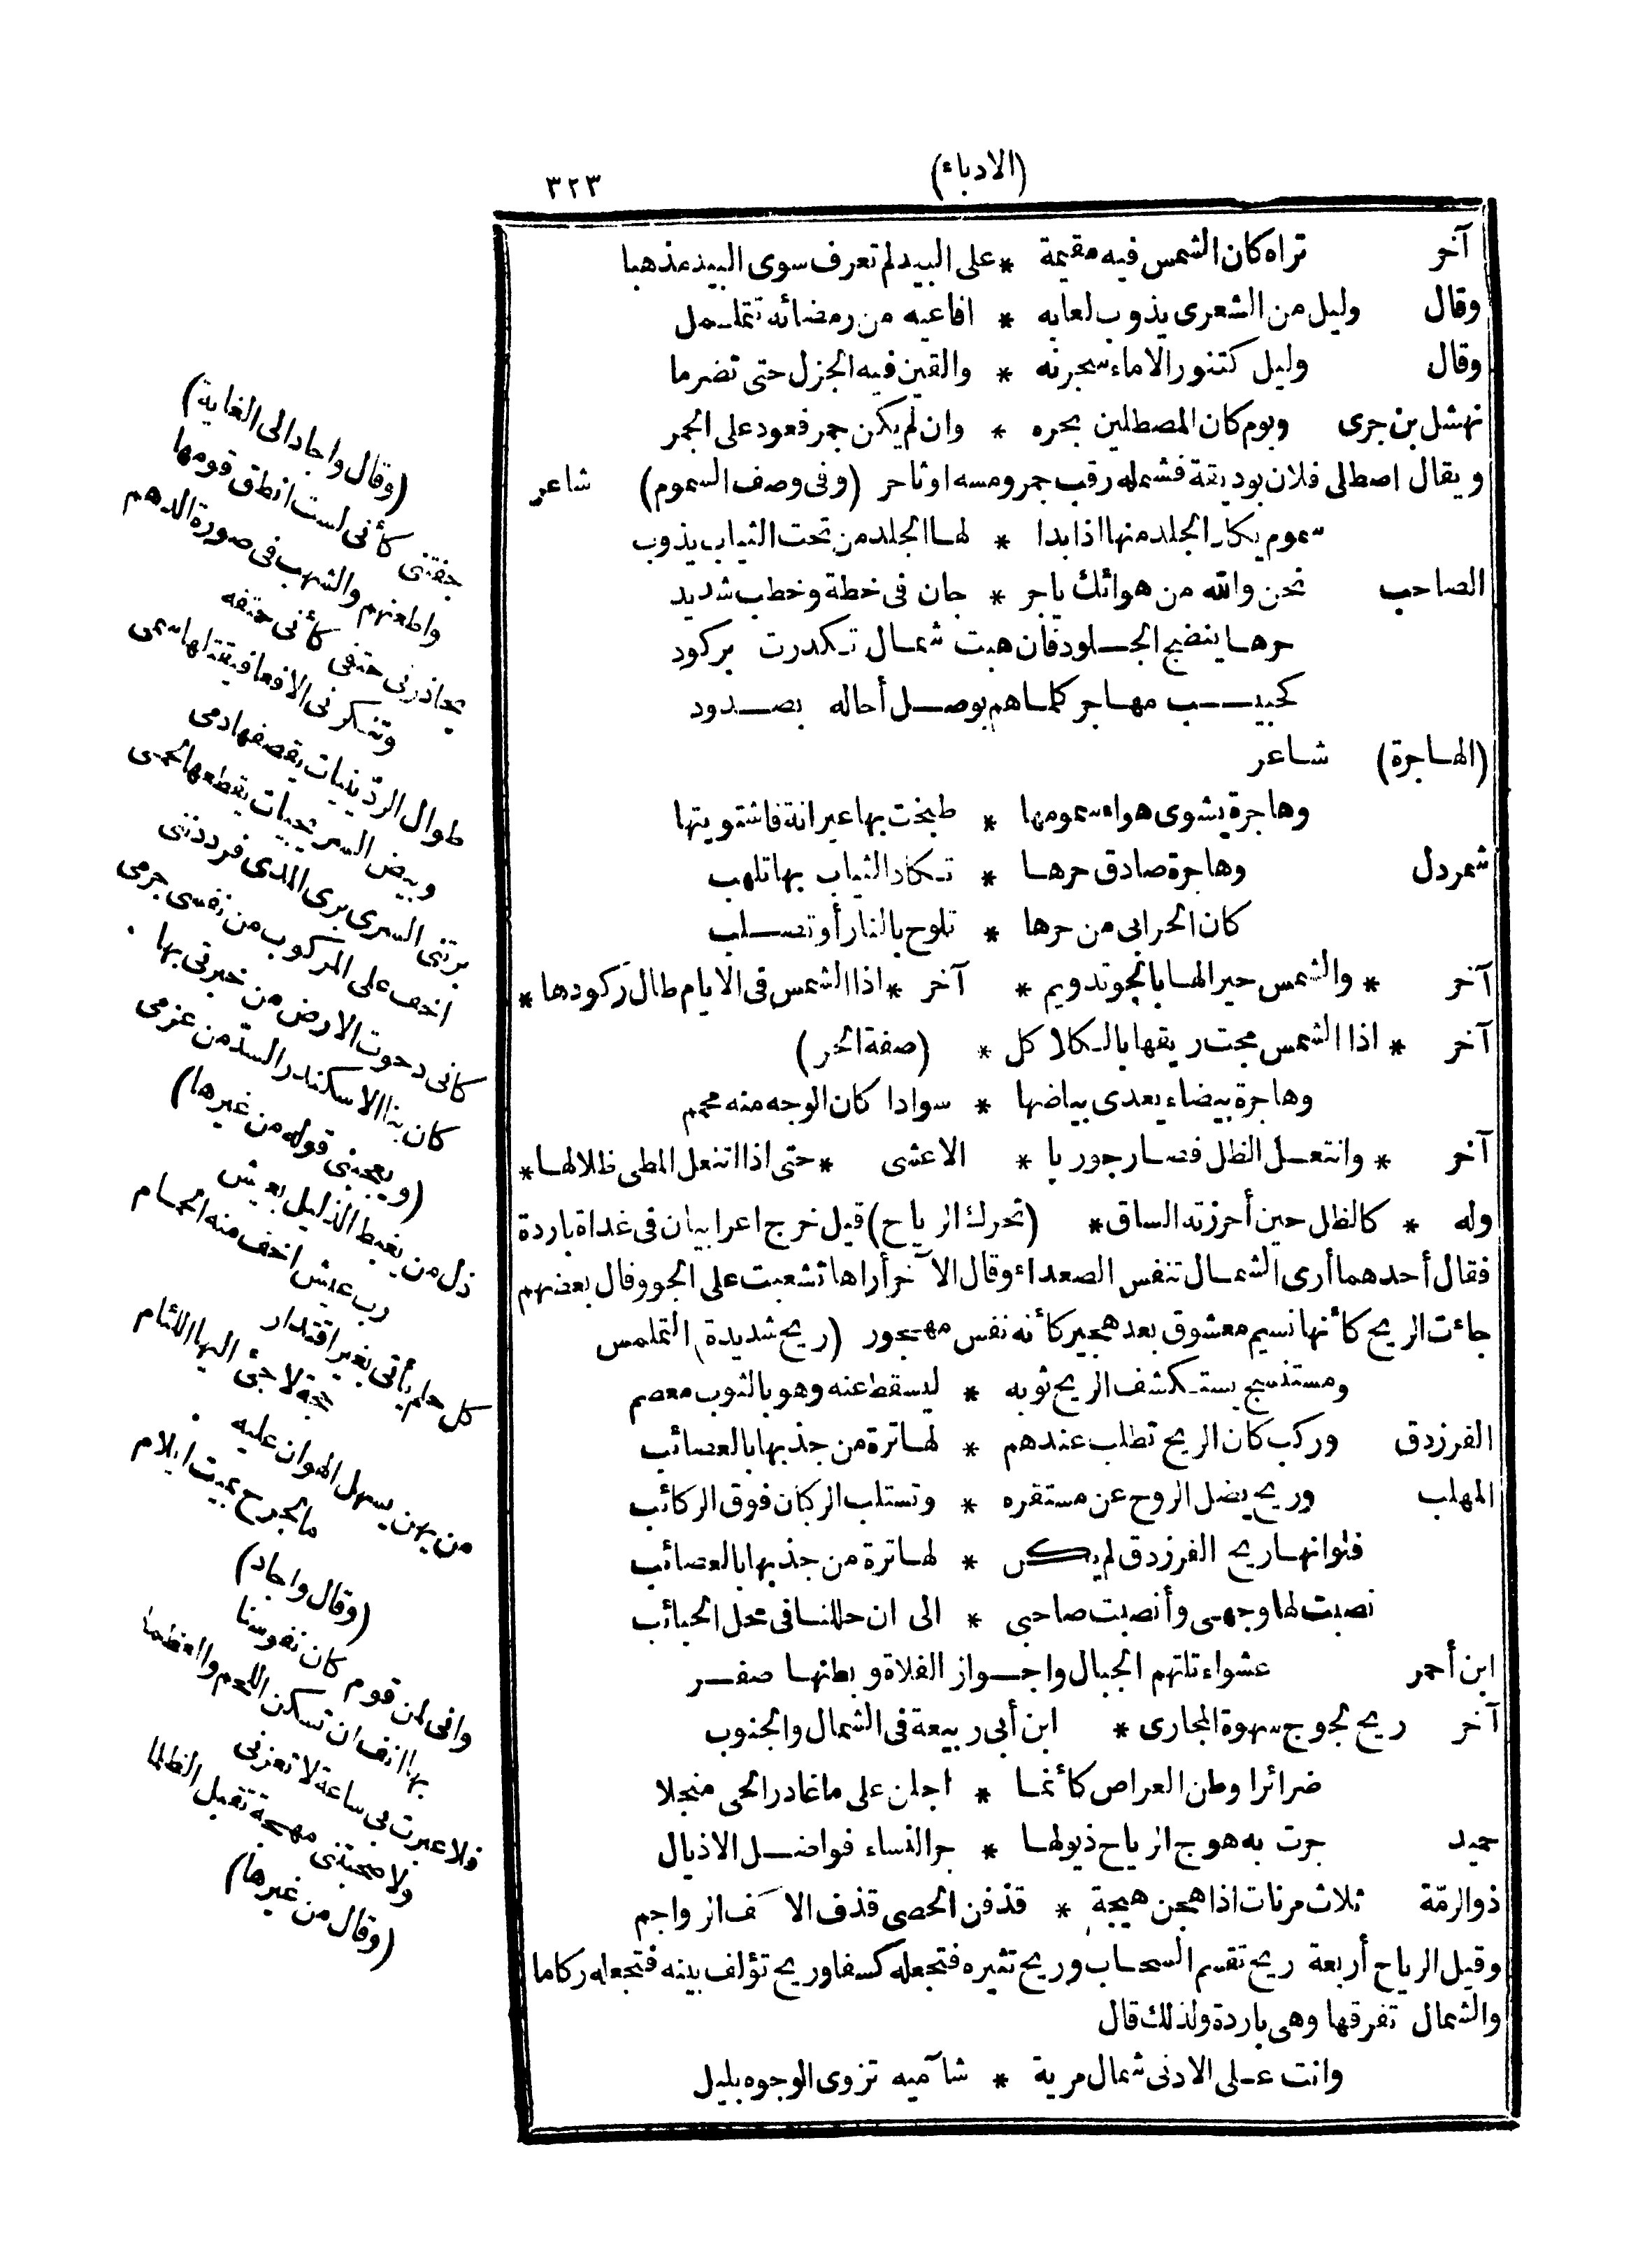 (الادباء)
٣٢٣
آخر تراه كان الشمس فيه مقيمة * على البيد لم تعرف سوى البيد مذهبا
وقال وليل من الشعرى يذوب لعابه * افاعيه من رمضائه تتململ
وقال وليل كتنور الاماء سجرنه * والقين فيه الجزل حتى تضرما
نهشل بن جرى ويوم كان المصطلين بحره * وان لم يكن جمر قعود على الجمر
ويقال اصطلى فلان بوديقة فشمله رقب جمر ومسه اوثاحر (وفى وصف السموم) شاعر
سموم يكاد الجلد منها اذا بدا * لها الجلد من تحت الثياب يذوب
الصاحب نحن والله من هوائك ياجر * جان فى خطة وخطب شديد
حرها ينضج الجلود فان هبت شمال تكدرت بركود
كحبيب مهاجر كلما هم بوصل أحاله بصدود
(الهاجرة) شاعر
وهاجرة يشوى هواء سمومها * طبخت بها عيرانة فاشتويتها
شمردل وهاجرة صادق حرها * تكاد الثياب بها تلهب
كان الحرابى من حرها * تلوح بالنار أو تصلب
آخر * والشمس حيرا لها بالجو تدويم * آخر * اذا الشمس فى الايام طال ركودها *
آخر * اذا الشمس مجت ريقها بالكلاكل * (صفة الحر)
وهاجرة بيضاء يعدى بياضها * سوادا كان الوجه منه محمم
آخر * وانتعل الظل فصار جوربا * الاعشى * حتى اذا انتعل المطى ظلالها *
وله * كالظل حين أحرزته الساق * (تحرك الرياح) قيل خرج اعرابيان فى غداة باردة
فقال أحدهما أرى الشمال تنفس الصعداء وقال الآخر أراها تشعبت على الجو وقال بعضهم
جاءت الريح كأنها نسيم معشوق بعد هجير كأنه نفس مهجور (ريح شديدة) المتلمس
ومستنبح يستكشف الريح ثوبه * ليسقط عنه وهو بالثوب معصم
الفرزدق وركب كان الريح تطلب عندهم * لها ترة من جذبها بالعصائب
المهلب وريح يضل الروح عن مستقره * وتستلب الركبان فوق الركائب
فلو انها ريح الفرزدق لم يكن * لها ترة من جذبها بالعصائب
نصبت لها وجهى وأنصبت صاحبى * الى ان حللنا فى محل الحبائب
ابن أحمر عشواء تلتهم الجبال واجواز الفلاة وبطنها صفر
آخر ريح لجوج سهوة المجارى * ابن أبى ربيعة فى الشمال والجنوب
ضرائرا وطن العراص كأنما * اجلن على ما غادر الحى منجلا
حميد جرت به هوج الرياح ذيولها * جر النساء فواضل الاذيال
ذو الرمّة ثلاث مرنات اذا هجن هيجة * قذفن الحصى قذف الاكف الرواجم
وقيل الرياح أربعة ريح تقسم السحاب وريح تثيره فتجعله كسفا وريح تؤلف بينه فتجعله ركاما
والشمال تفرقها وهى باردة ولذلك قال
وانت على الادنى شمال مرية * شآمية تزوى الوجوه بليل
(وقال واجاد الى الغاية)
جفتنى كأنى لست انطق قومها
واطعنهم والشهب فى صورة الدهم
يحاذرنى حتفى كأنى حتفه
وتنكزنى الافعا فيقتلها سمى
طوال الردّينيات يقصفها دمى
وبيض السريجيات يقطعها لحمى
برتنى السرى برى المدى فرددننى
اخف على المركوب من نفسى جرمى
كانى دحوت الارض من خبرتى بها
كان بنا الاسكندر السدّ من عزمى
(ويعجبنى قوله من غيرها)
ذل من يغبط الذليل بعيش
رب عيش اخف منه الحمام
كل حلم يأتى بغير اقتدار
حجة لاجئ اليها اللئام
من يهن يسهل الهوان عليه
ما لجرح بميت ايلام
(وقال واجاد)
وانى لمن قوم كان نفوسنا
بها انف ان تسكن اللحم والعظما
فلا عبرت بى ساعة لا تعزنى
ولا صحبتنى مهجة تقبل الظلما
(وقال من غيرها)